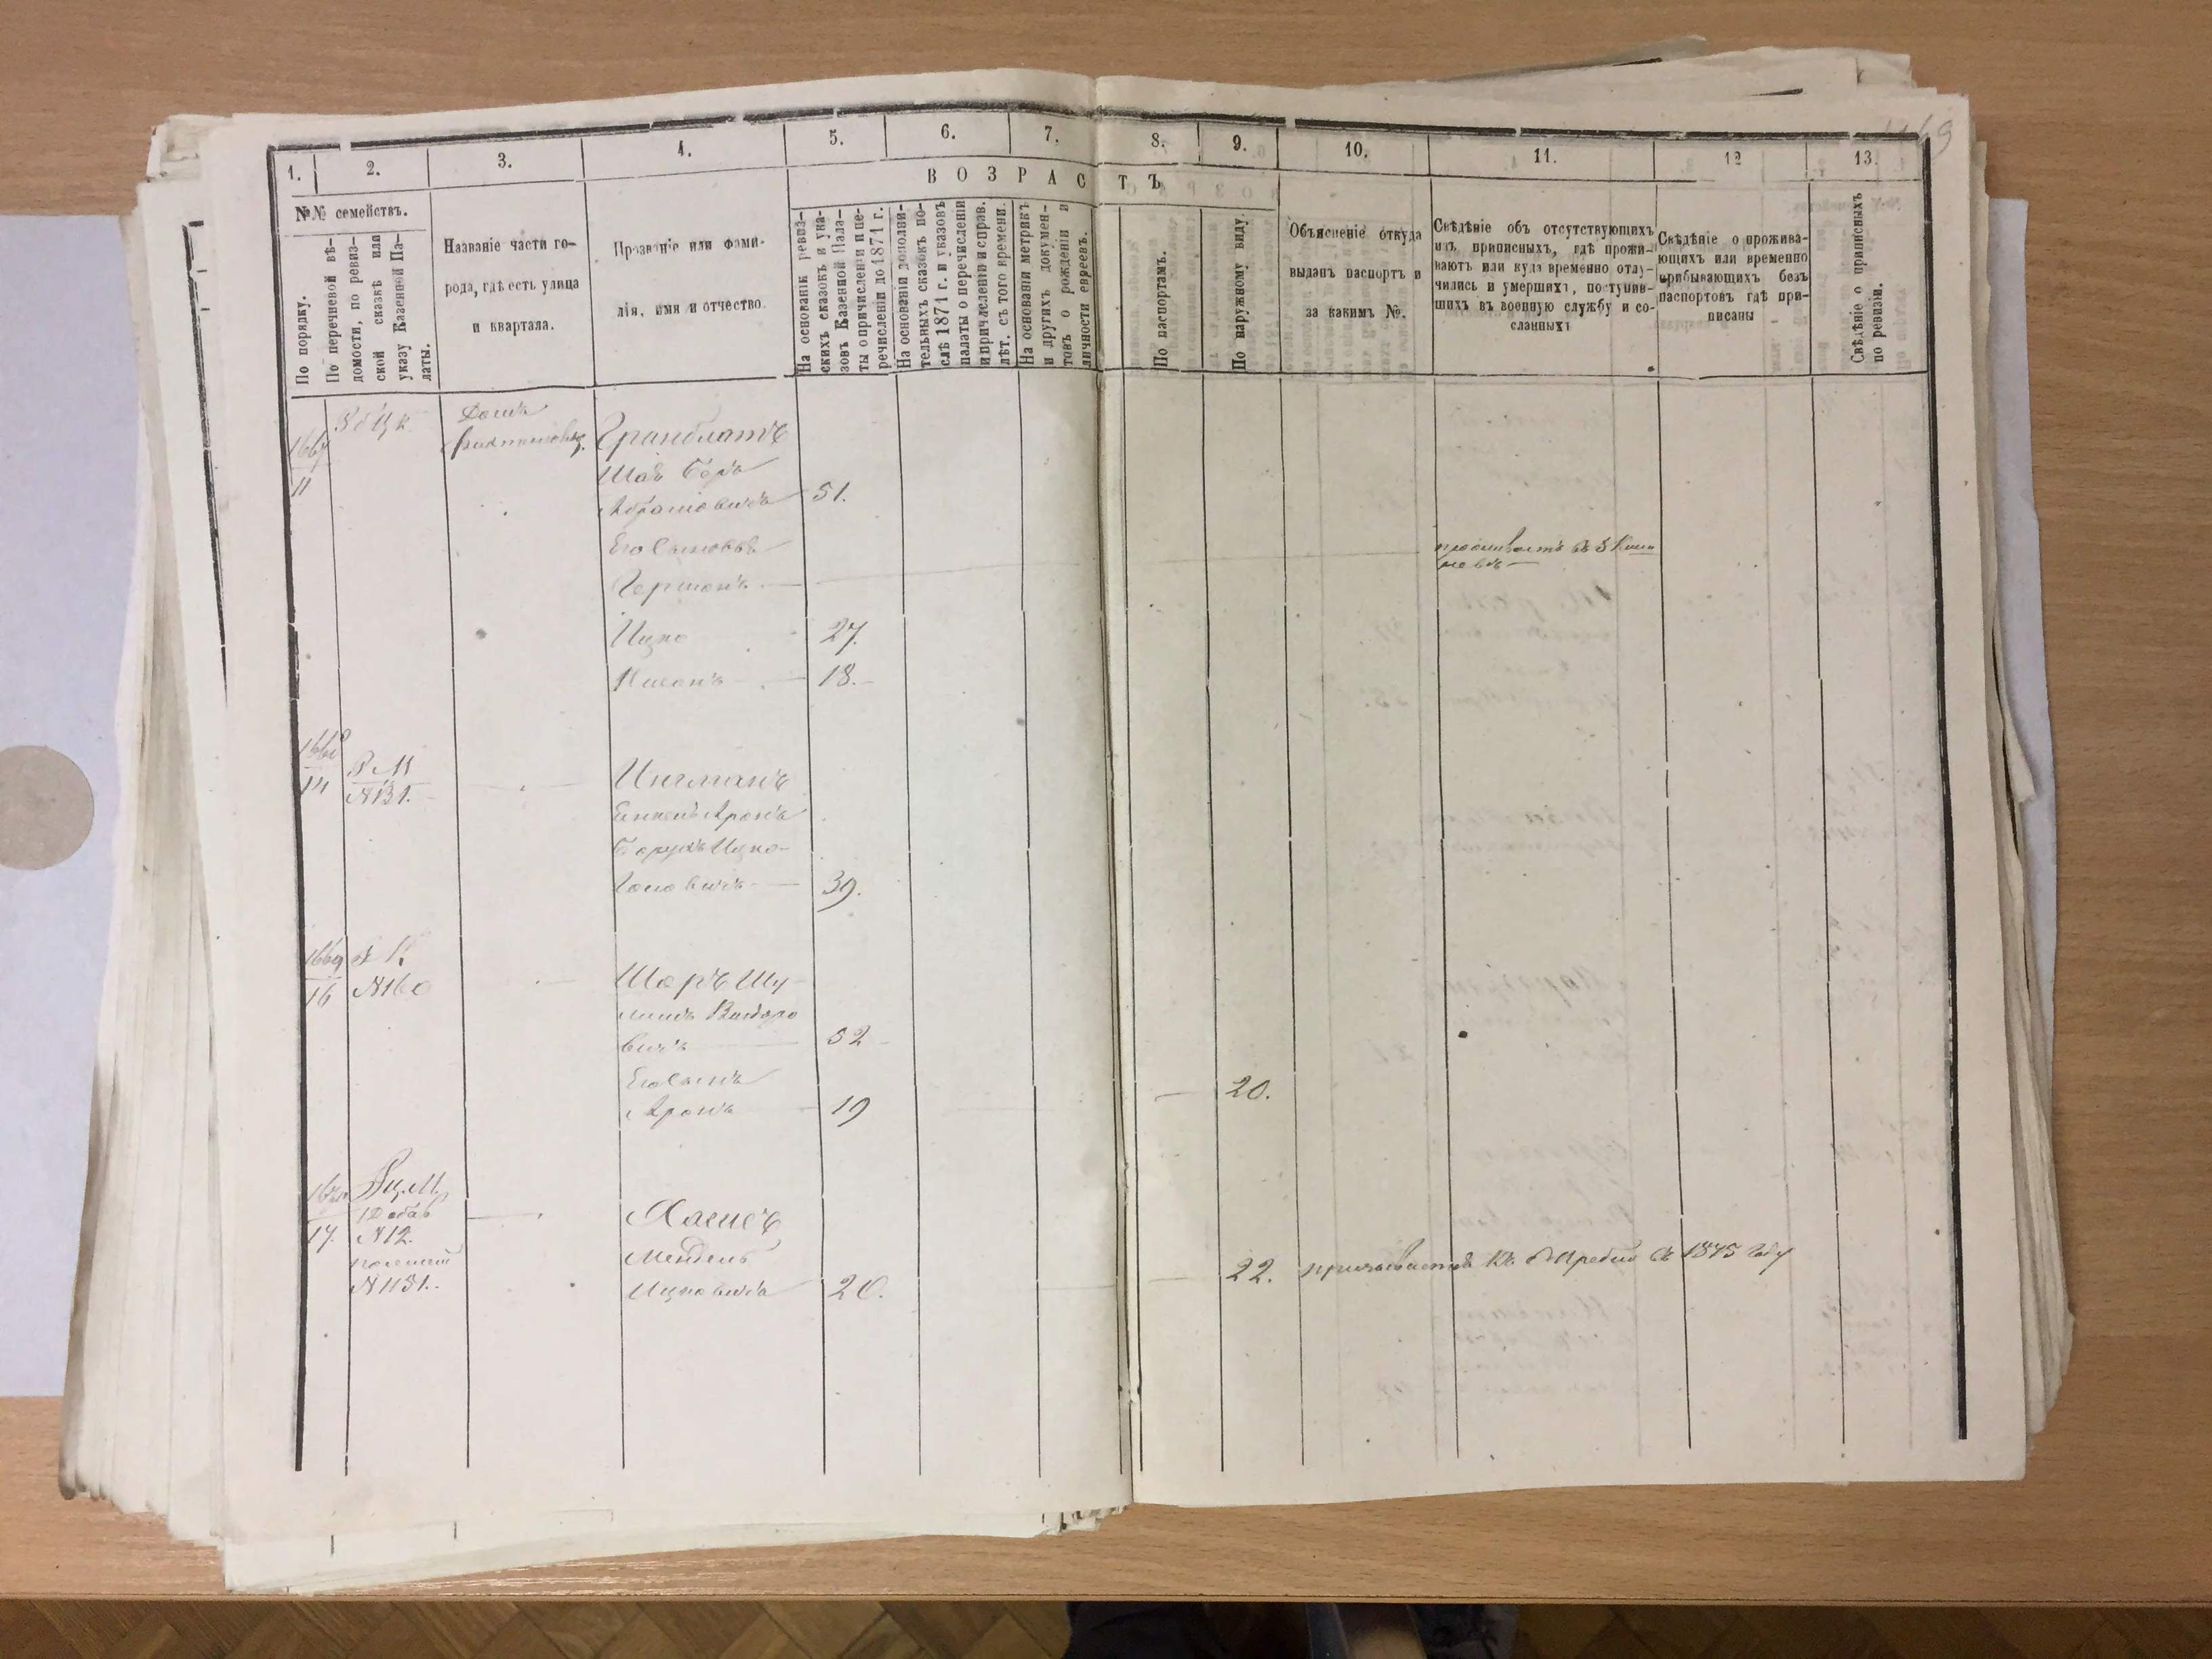 1.
2.
3.
4.
5.
6.
7.
8.
9.
10.
11.
12
13.
ВОЗРАСТЪ
№№ семействъ.
По порядку.
По перечневой вѣ-
домости, по ревиз-
ской сказкѣ или
указу Казенной Па-
латы.
Названіе части го-
рода, гдѣ есть улица
и квартала.
Прозваніе или фами-
лія, имя и отчество.
На основаніи ревиз-
скихъ сказокъ и ука-
зовъ Казенной Пала-
ты о причисленіи и пе-
речисленіи до 1871 г.
На основаніи дополни-
тельныхъ сказокъ по-
слѣ 1871 г. и указовъ
палаты о перечисленіи
и причисленіи и справ.
лѣт. съ того времени.
На основаніи метрикъ
и другихъ докумен-
товъ о рожденіи и
личности евреевъ.
По паспортамъ.
По наружному виду.
Объясненіе откуда
выданъ паспортъ и
за какимъ №.
Свѣдѣніе объ отсутствующихъ
изъ приписныхъ, гдѣ прожи-
ваютъ или куда временно отлу-
чились и умершихъ, поступив-
шихъ въ военную службу и со-
сланныхъ
Свѣдѣніе о прожива-
ющихъ или временно
прибывающихъ безъ
паспортовъ гдѣ при-
писаны
Свѣдѣніе о приписныхъ
по ревизіи.
1667
11
Домъ
Гранблатъ
Шая Беръ
Абрамовичъ 51.
Его Сыновья
Гершонъ
проживаетъ въ
Ицко 27.
Нисонъ 18.
1668
14
№ 131.
Ингманъ
Аронъ
Борухъ Ицко-
39.
1669 К
16 № 160
Шоръ Шу-
лимъ
вичъ 52
Его Сынъ
Аронъ 19 20.
1670
17. № 12.
№ 1181.
Хаисъ
Мендель
Ицковичъ 20. 22. призывается къ жребію въ 1875 году